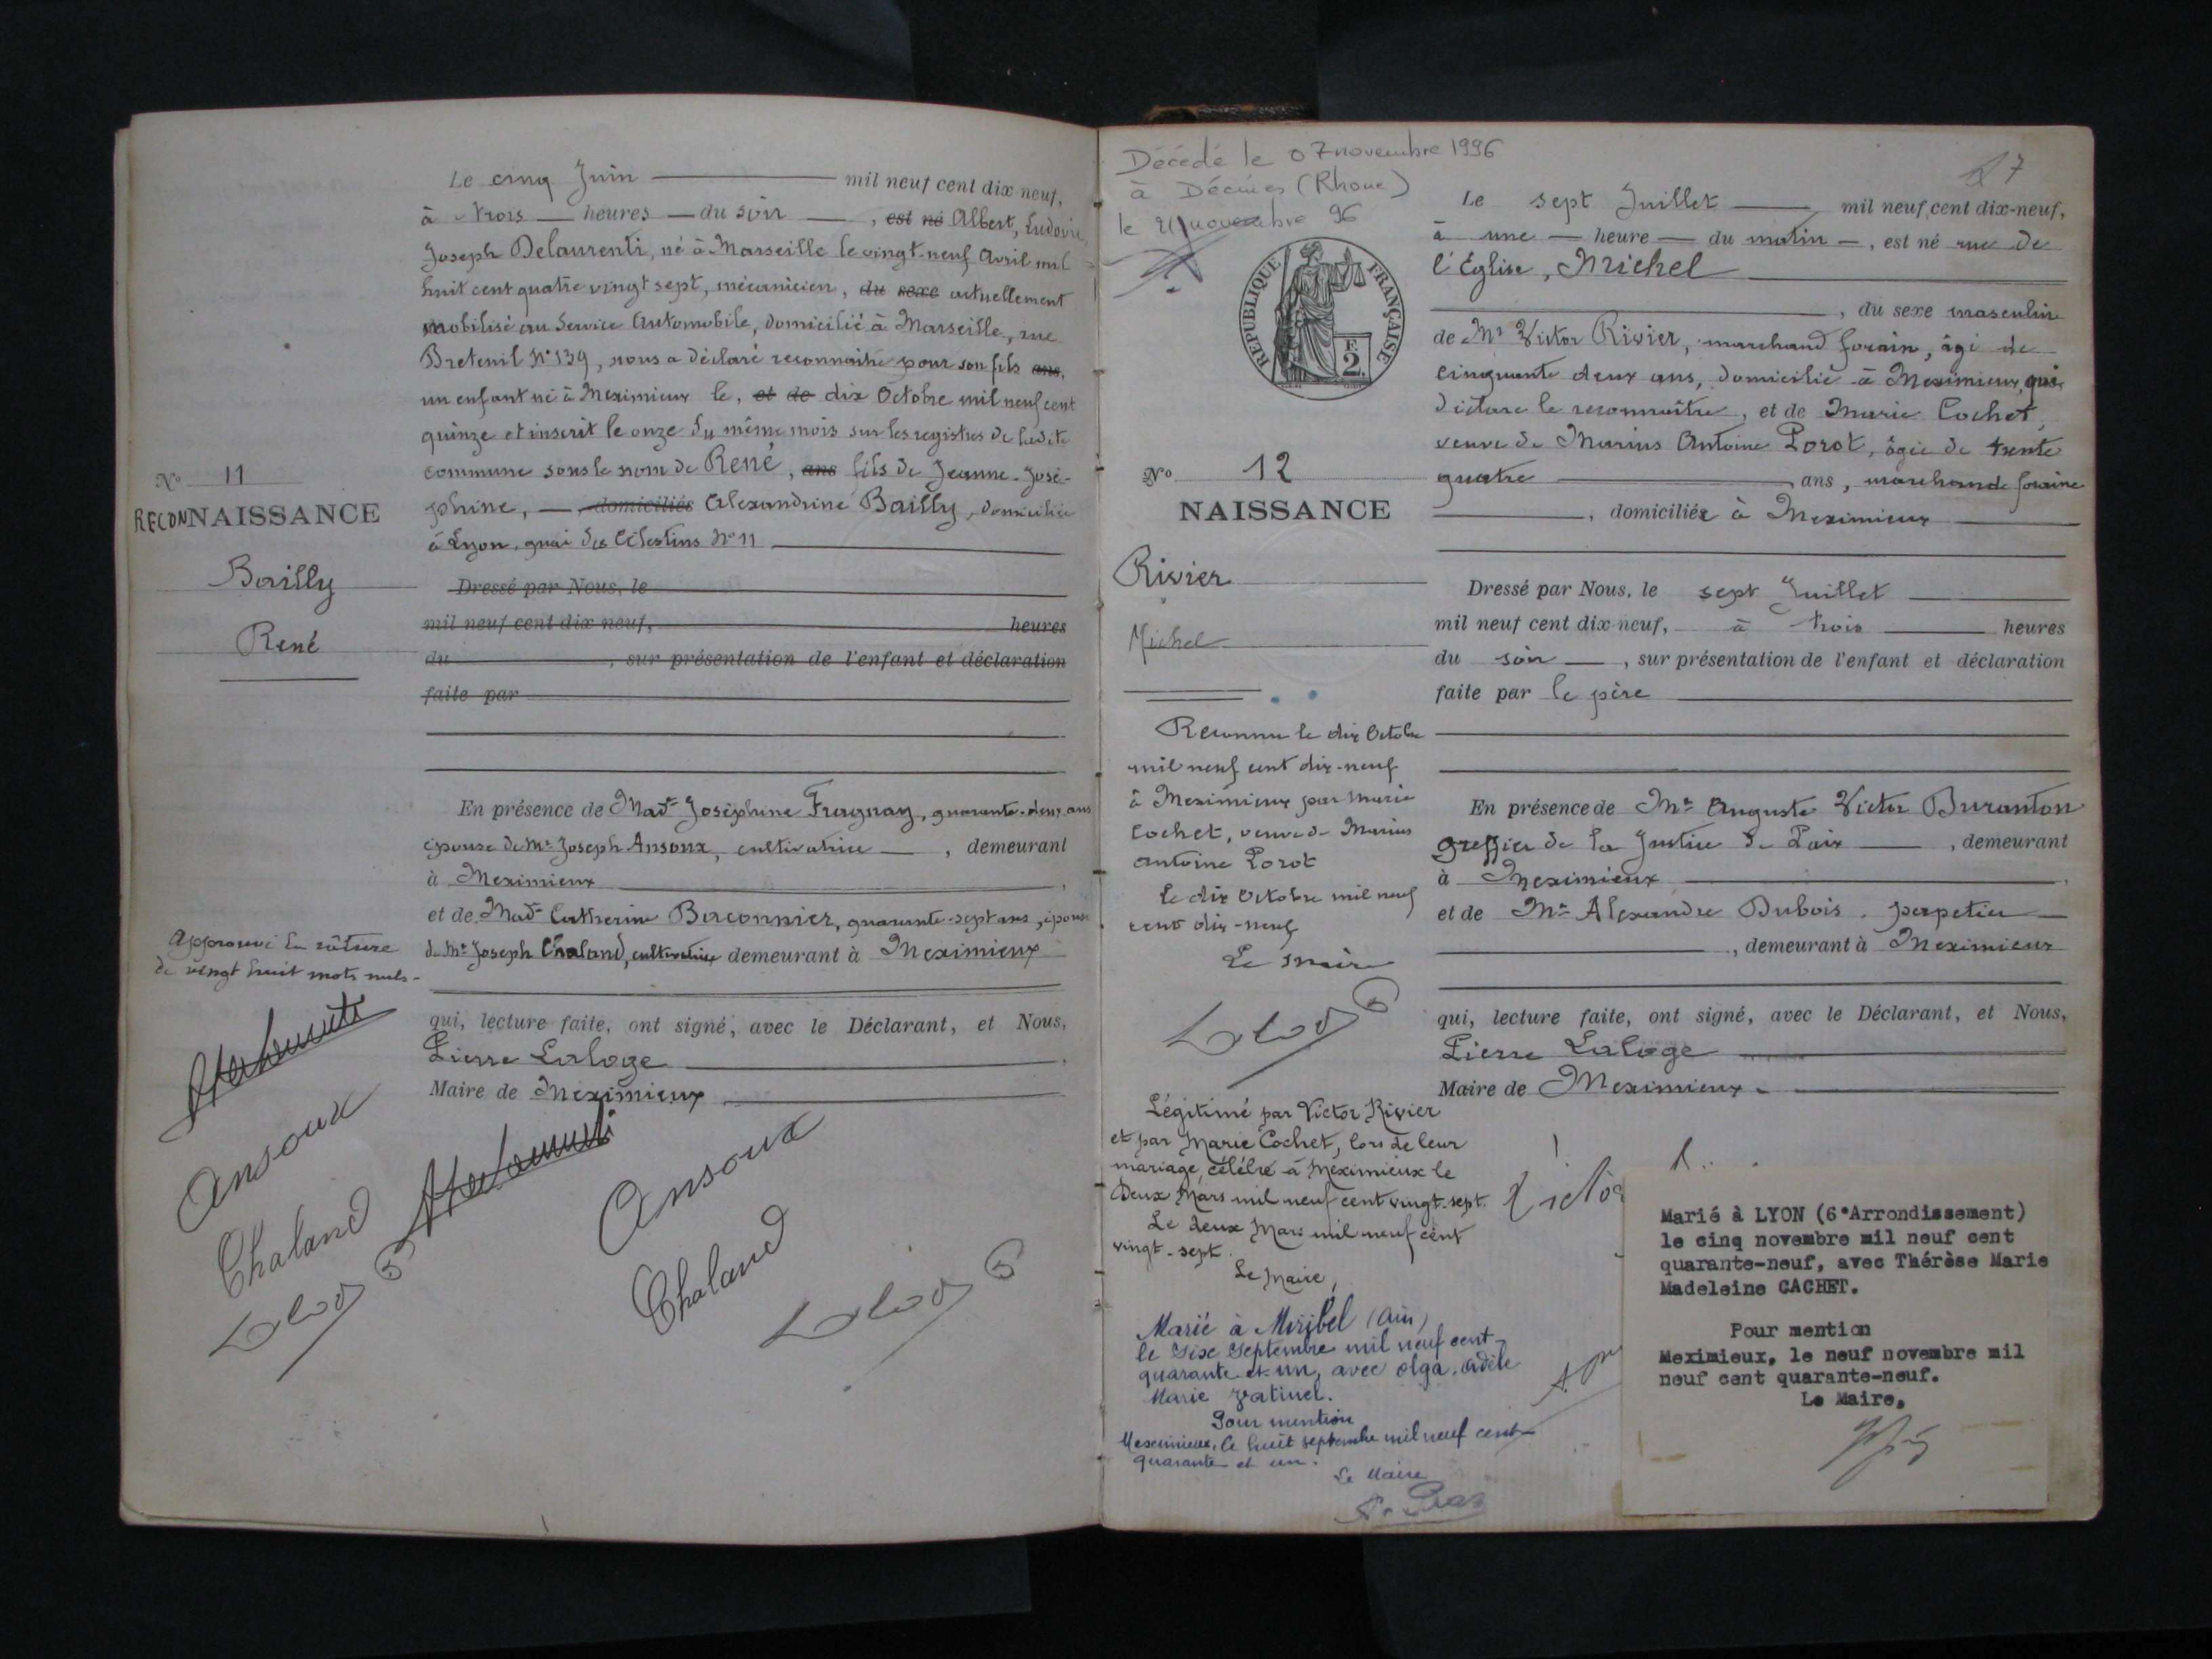 Le cinq Juin mil neuf cent dix-neuf,
à trois heures du soir, est né Albert, Ludovic
Joseph Delaurenti, né à Marseille le vingt-neuf Avril mil
huit cent quatre vingt sept, mécanicien, du sexe actuellement
mobilisé au Service Automobile, domicilié à Marseille, rue
Breteuil N° 139, nous a déclaré reconnaître pour son fils ans,
un enfant né à Meximieux le, et de dix Octobre mil neuf cent
quinze et inscrit le onze du même mois sur les registres de ladite
commune sous le nom de René, ans fils de Jeanne-José-
phine, domiciliés Alexandrine Bailly, domiciliée
à Lyon, quai des Célestins N° 11
N° 11
RECONNAISSANCE
Bailly
René
Dressé par Nous, le
mil neuf cent dix-neuf, heures
du , sur présentation de l'enfant et déclaration
faite par
En présence de Made Joséphine Fragnay, quarante-deux ans
épouse de Mr Joseph Ansoux, cultivatrice, demeurant
à Meximieux,
et de Made Catherine Baconnier, quarante-sept ans, épouse
de Mr Joseph Chaland, cultivatrice demeurant à Meximieux
Approuvé la rature
de vingt huit mots nuls-
qui, lecture faite, ont signé, avec le Déclarant, et Nous,
Pierre Laloge,
Maire de Meximieux
Ansoux
Chaland
Ansoux
Chaland
Décédé le 07 novembre 1996
à Décines (Rhone)
le 21 novembre 96
27
REPUBLIQUE FRANÇAISE
F.
2.
Le sept Juillet mil neuf cent dix-neuf,
à une heure du matin, est né rue de
l'Église, Michel
, du sexe masculin
de Mr Victor Rivier, marchand forain, âgé de
cinquante deux ans, domicilié à Meximieux, qui
déclare le reconnaître, et de Marie Cochet,
veuve de Marius Antoine Porot, âgée de trente
quatre ans, marchande foraine
, domiciliée à Meximieux
N° 12
NAISSANCE
Rivier
Michel
Dressé par Nous, le sept Juillet
mil neuf cent dix-neuf, à trois heures
du soir, sur présentation de l'enfant et déclaration
faite par le père
En présence de Mr Auguste Victor Buranton
greffier de la Justice de Paix, demeurant
à Meximieux,
et de Mr Alexandre Dubois, perpetier
, demeurant à Meximieux
qui, lecture faite, ont signé, avec le Déclarant, et Nous,
Pierre Laloge
Maire de Meximieux
Reconnu le dix Octobre
mil neuf cent dix-neuf
à Meximieux par Marie
Cochet, veuve de Marius
Antoine Porot
Le dix Octobre mil neuf
cent dix-neuf
Le Maire
Légitimé par Victor Rivier
et par Marie Cochet, lors de leur
mariage célébré à Meximieux le
Deux Mars mil neuf cent vingt-sept.
Le deux Mars mil neuf cent
vingt-sept.
Le Maire,
Marié à Miribel (Ain)
le Six Septembre mil neuf cent
quarante et un, avec Olga, Adèle
Marie Vatinel.
Pour mention
Meximieux, le huit septembre mil neuf cent
quarante et un.
Le Maire
Marié à LYON (6°Arrondissement)
le cinq novembre mil neuf cent
quarante-neuf, avec Thérèse Marie
Madeleine CACHET.
Pour mention
Meximieux, le neuf novembre mil
neuf cent quarante-neuf.
Le Maire,